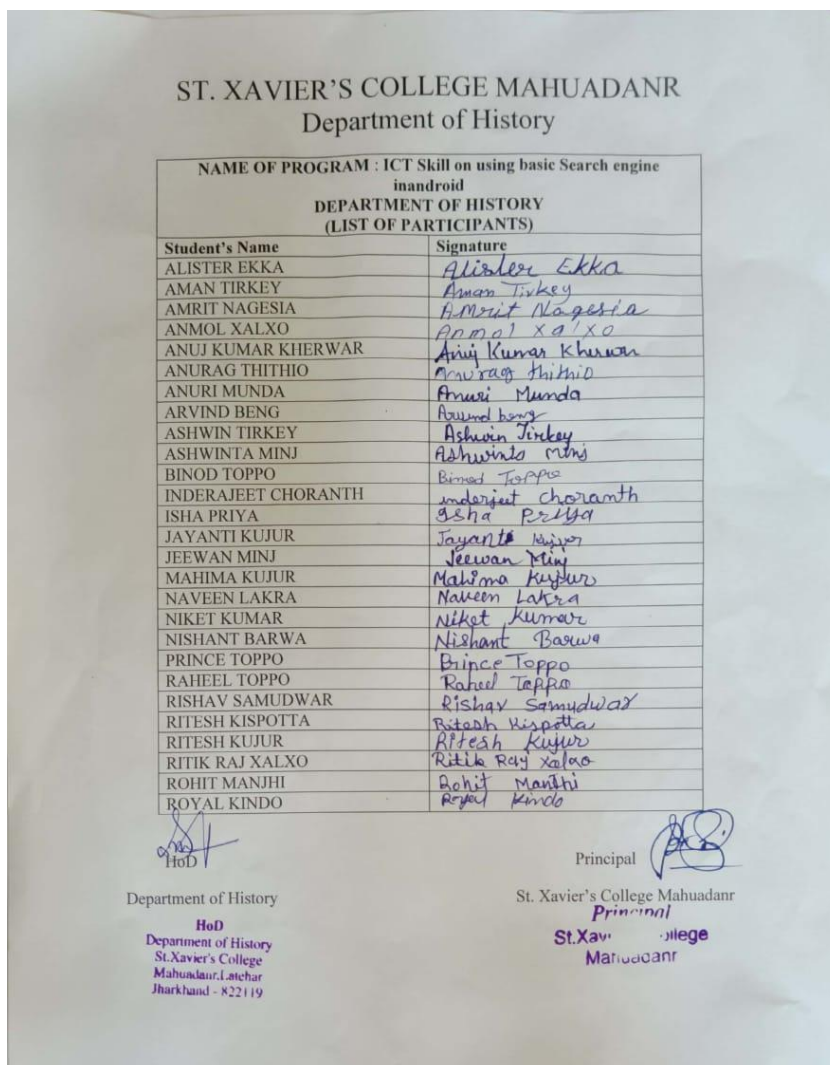 ST. XAVIER'S COLLEGE MAHUADANR
Department of History
NAME OF PROGRAM : ICT Skill on using basic Search engine
inandroid
DEPARTMENT OF HISTORY
(LIST OF PARTICIPANTS)
Student's Name Signature
ALISTER EKKA Alister Ekka
AMAN TIRKEY Aman Tirkey
AMRIT NAGESIA Amrit Nagesia
ANMOL XALXO Anmol xalxo
ANUJ KUMAR KHERWAR Anuj Kumar Kherwar
ANURAG THITHIO Anurag thithio
ANURI MUNDA Anuri Munda
ARVIND BENG Arvind beng
ASHWIN TIRKEY Ashwin Tirkey
ASHWINTA MINJ Ashwinta minj
BINOD TOPPO Binod Toppo
INDERAJEET CHORANTH inderjeet choranth
ISHA PRIYA Isha Priya
JAYANTI KUJUR Jayanti kujur
JEEWAN MINJ Jeewan Minj
MAHIMA KUJUR Mahima Kujur
NAVEEN LAKRA Naveen Lakra
NIKET KUMAR Niket Kumar
NISHANT BARWA Nishant Barwa
PRINCE TOPPO Prince Toppo
RAHEEL TOPPO Raheel Toppo
RISHAV SAMUDWAR Rishav Samudwar
RITESH KISPOTTA Ritesh Kispotta
RITESH KUJUR Ritesh Kujur
RITIK RAJ XALXO Ritik Raj xalxo
ROHIT MANJHI Rohit Manjhi
ROYAL KINDO Royal Kindo
HoD Principal
Department of History St. Xavier's College Mahuadanr
HoD
Department of History
St.Xavier's College
Mahuadanr,Latehar
Jharkhand - 822119
Principal
St.Xav ollege
Mahuadanr